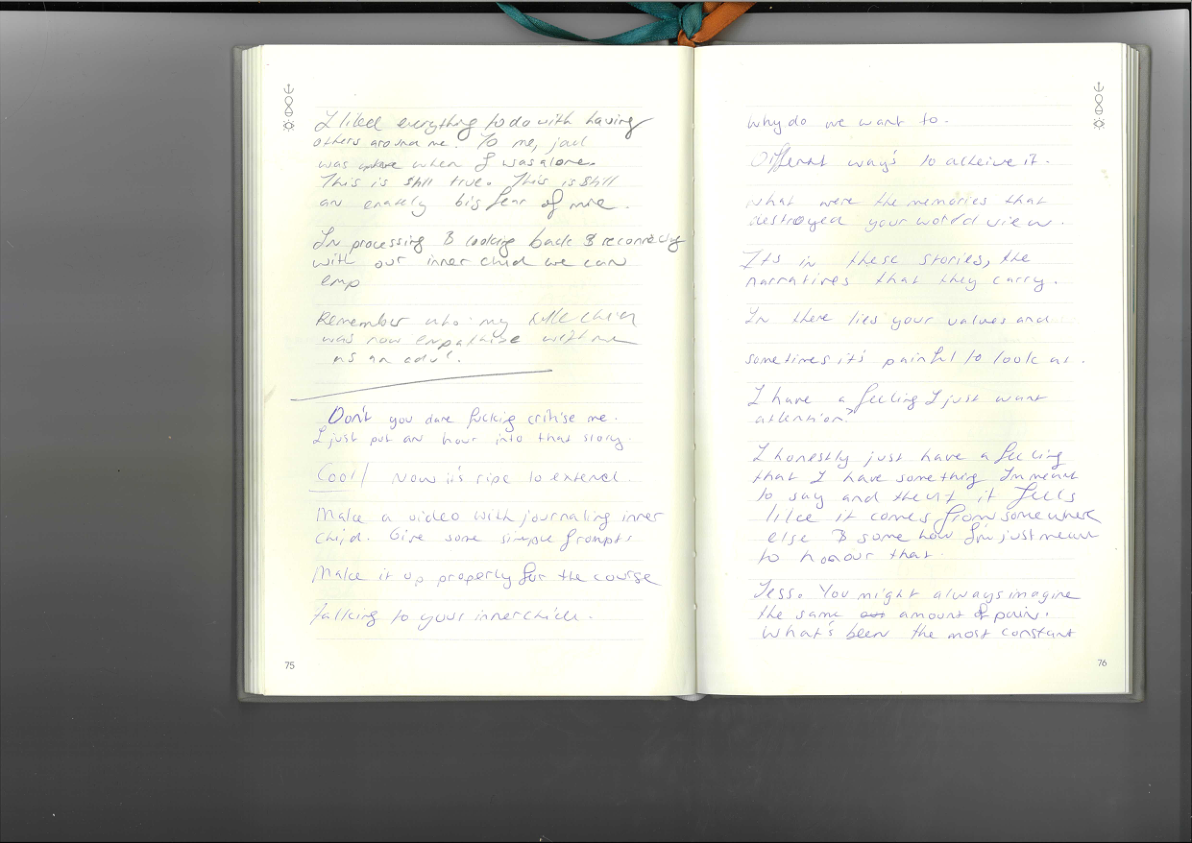 I liked everything to do with having
others around me. To me, jail
was where when I was alone.
This is still true. This is still
an big fear of mine.
In processing & looking back & reconnecting
with our inner child we can
emp
Remember who my little child
was now empathise with me
as an adult.
Don't you dare fucking critise me.
I just put an hour into that story.
Cool! Now it's ripe to extend.
Make a video with journaling inner
child. Give some simple prompts
Make it up properly for the course
Talking to your inner child.
75
Why do we want to.
Different way's to atheive it.
What were the memories that
destroyed your world view.
Its in these stories, the
narratives that they carry.
In there lies your values and
sometimes it's painful to look at.
I have a feeling I just want
attention?
I honestly just have a feeling
that I have something I'm meant
to say and it feels
like it comes from somewhere
else & some how I'm just meant
to honour that.
Jess. You might always imagine
the same amount of pain.
What's been the most constant
76